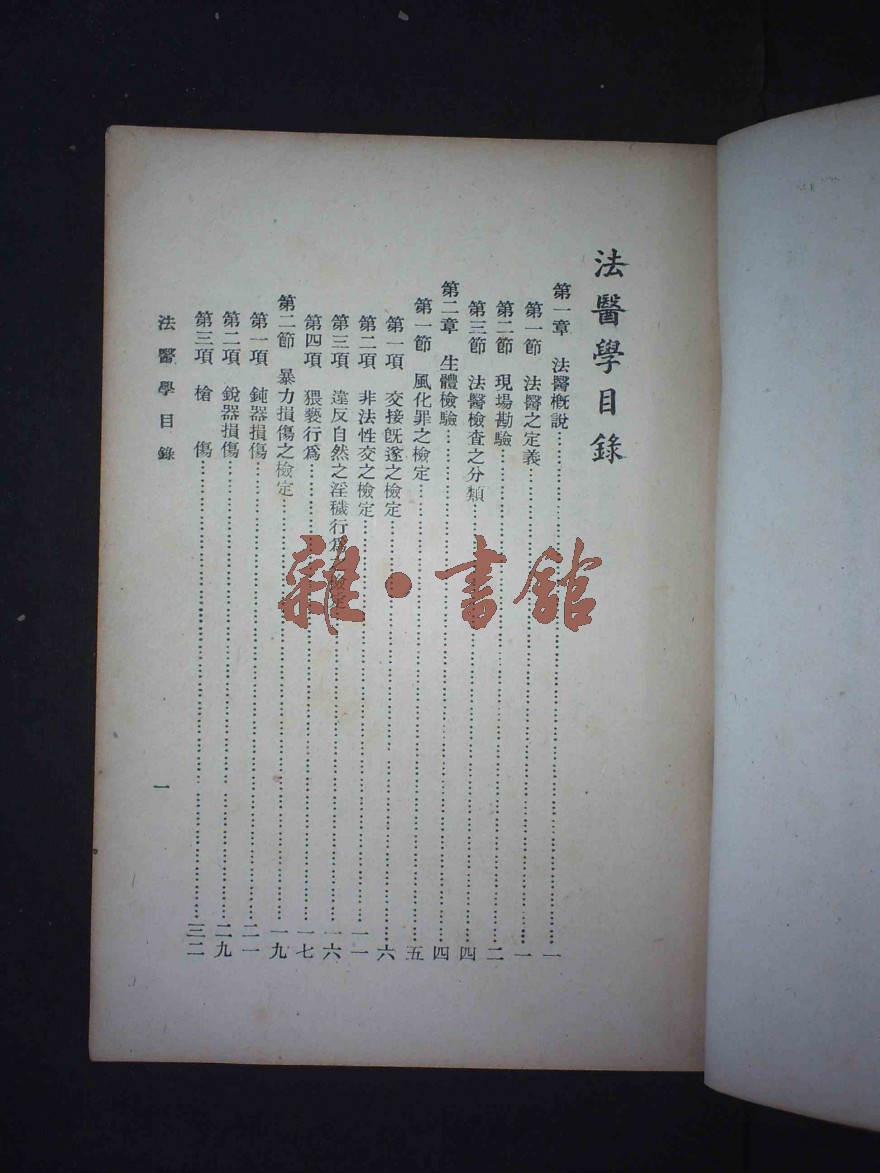 法醫學目錄
第一章　法醫概說……一
第一節　法醫之定義……一
第二節　現場勘驗……二
第三節　法醫檢查之分類……四
第二章　生體檢驗……四
第一節　風化罪之檢定……五
第一項　交接既遂之檢定……六
第二項　非法性交之檢定……一一
第三項　違反自然之淫穢行爲之檢定……一六
第四項　猥褻行爲……一七
第二節　暴力損傷之檢定……一九
第一項　鈍器損傷……二一
第二項　銳器損傷……二九
第三項　槍　傷……三二
法醫學目錄
一
雜·書館